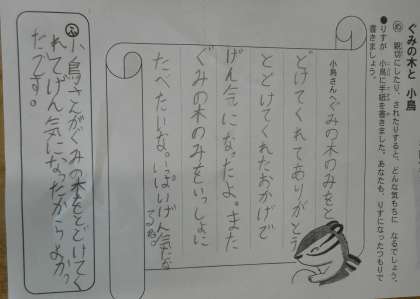 ぐみの木と 小鳥
め 親切にしたり、されたりすると、どんな気もちに なるでしょう。
●りすが、小鳥に手紙を書きました。あなたも、りすになったつもりで
書きましょう。
小鳥さんへ ぐみの木のみをと
どけてくれてありがとう
とどけてくれたおかげで
げん気になったよ。また
ぐみの木のみをいっしょに
たべたいな。いっぱいげん気だな
ふ 小鳥さんがぐみの木をとどけてく
れてげん気になったからよかっ
たです。